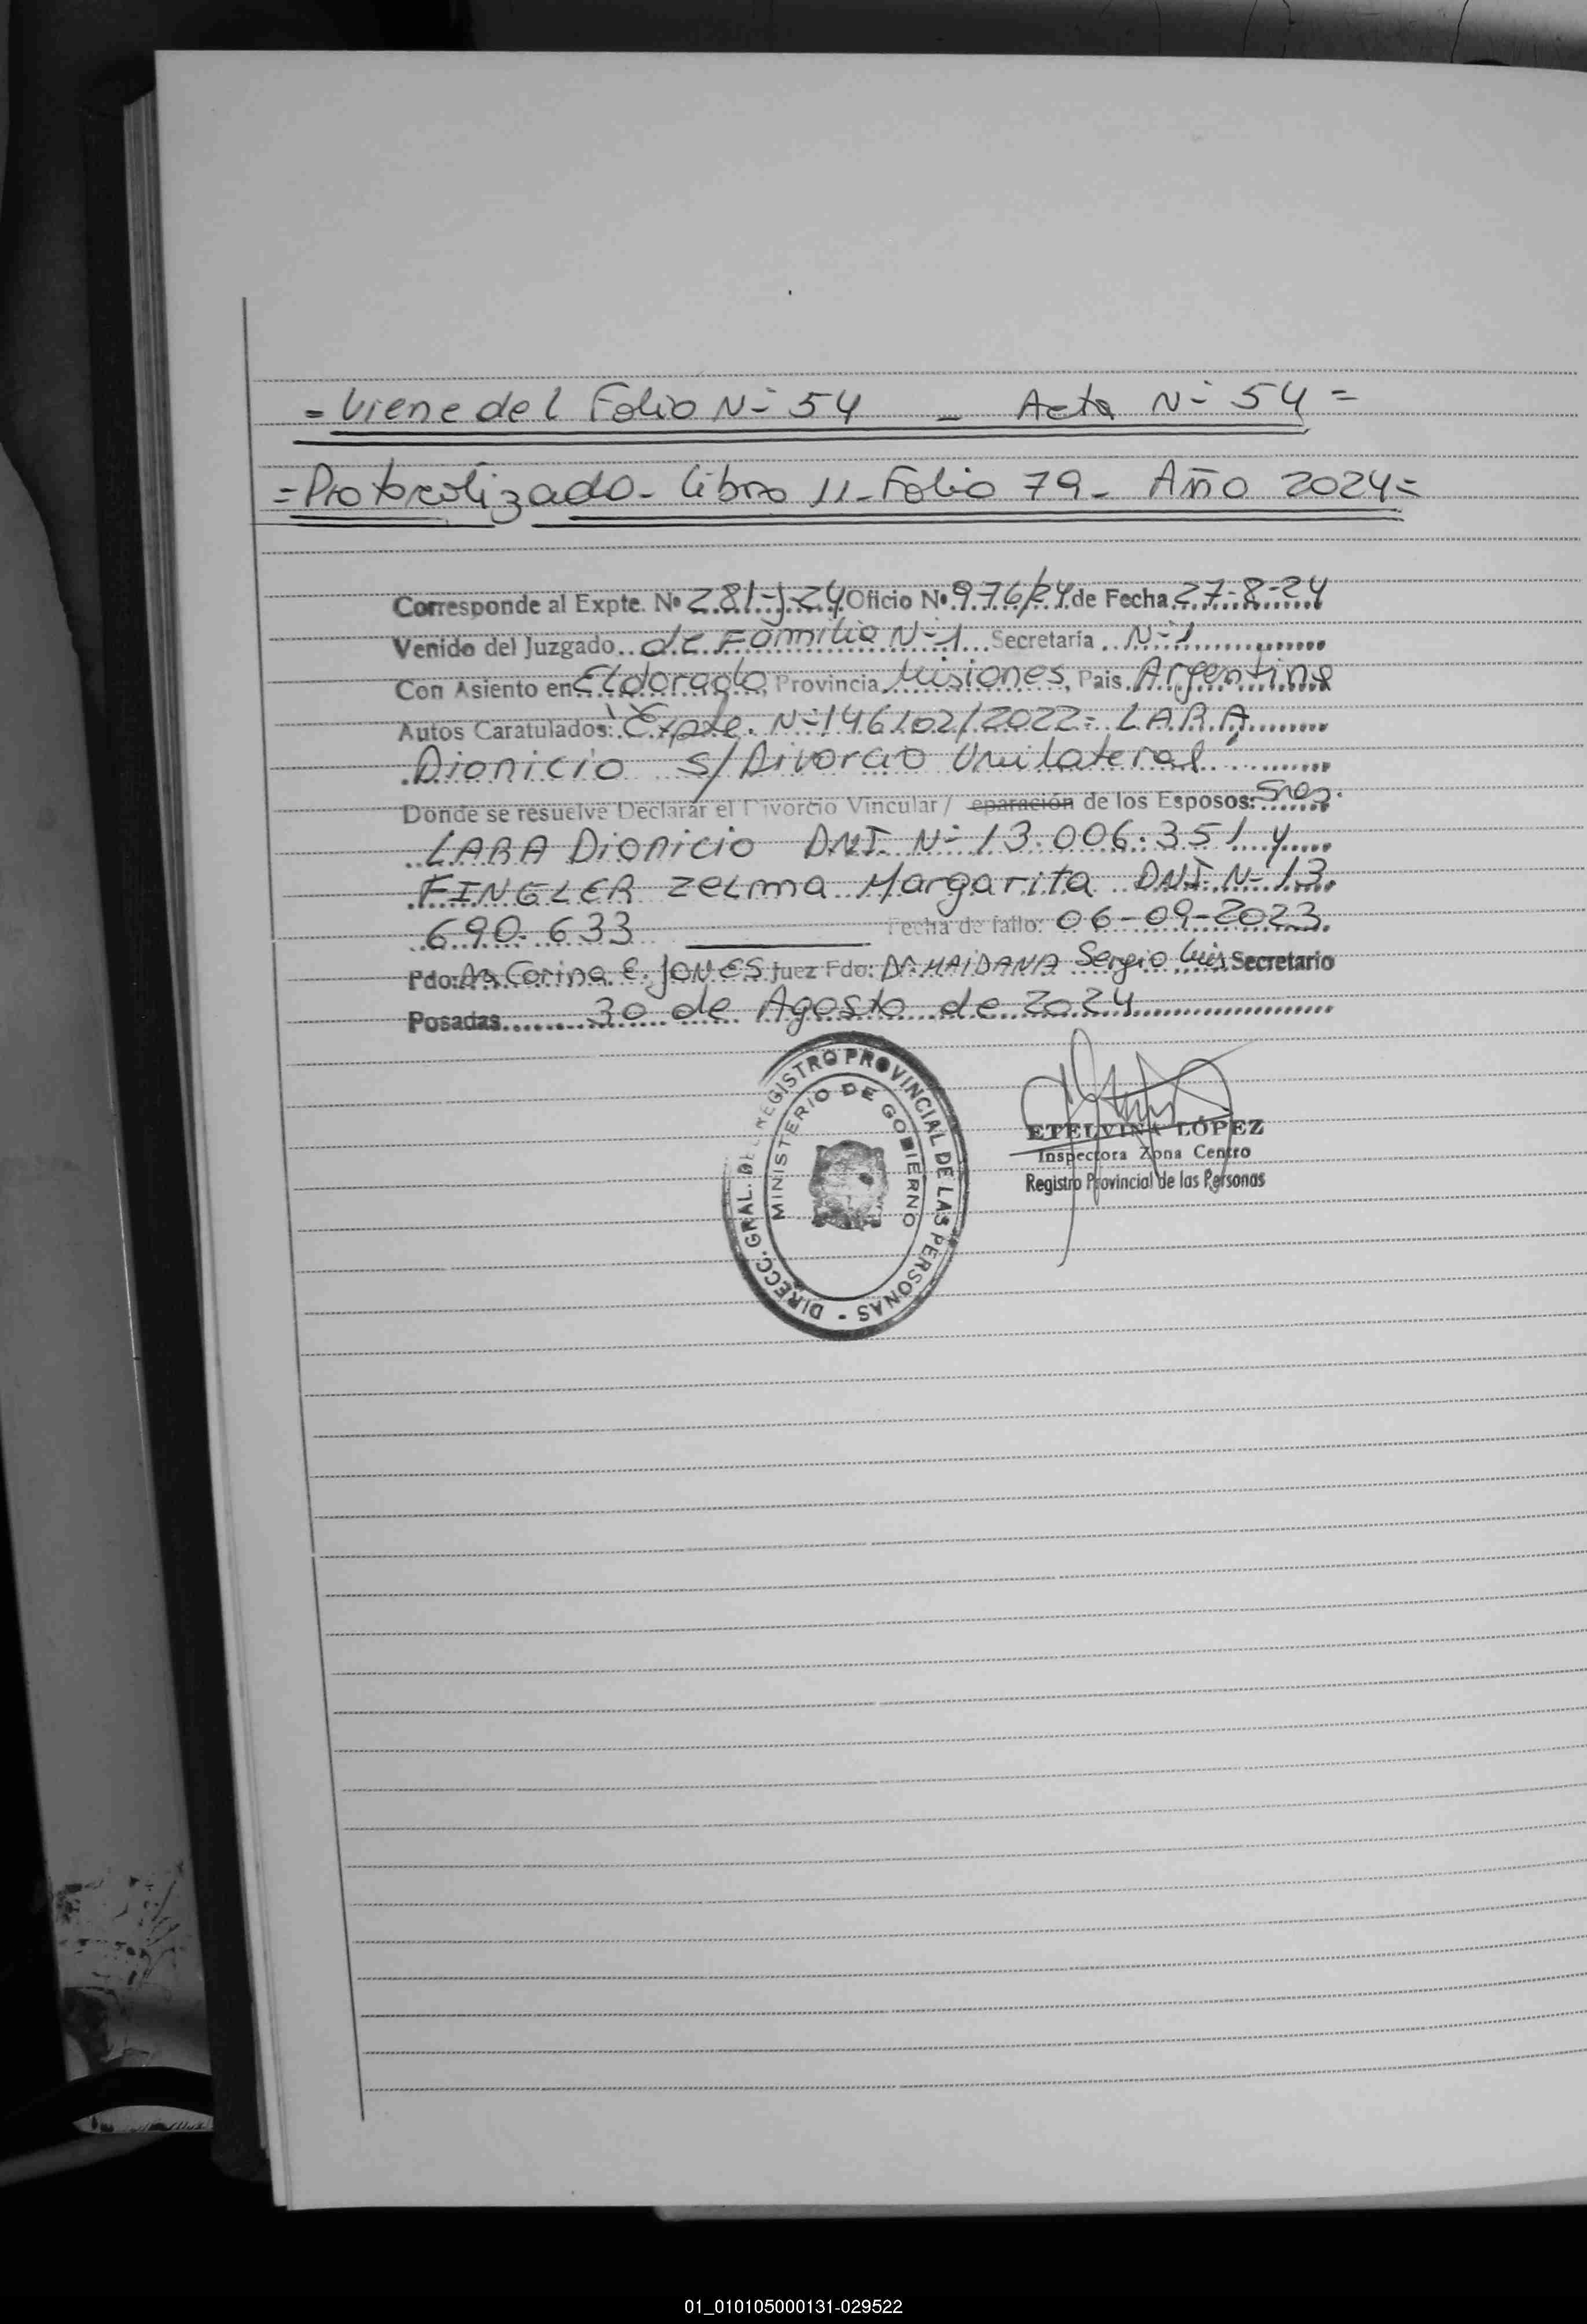 = Viene del Folio Nº 54 - Acta Nº 54 =
= Protocolizado - Libro 11 - Folio 79 - Año 2024 =
Corresponde al Expte. Nº 281-J-24 Oficio Nº 976/24 de Fecha 27-8-24
Venido del Juzgado de Familia Nº 1 Secretaría Nº 1
Con Asiento en Eldorado, Provincia Misiones, Pais Argentina
Autos Caratulados: "Expte. Nº 146102/2022 = LARA
Dionicio s/ Divorcio Unilateral"
Donde se resuelve Declarar el Divorcio Vincular / eparación de los Esposos: Sres.
LARA Dionicio DNI. Nº 13.006.351 y
FINGLER Zelma Margarita DNI. Nº 13.
690.633 Fecha de fallo: 06-09-2023
Fdo: Dra Corina E. JONES Juez Fdo: Dr. MAIDANA Sergio Luis Secretario
Posadas 30 de Agosto de 2024
DIRECC. GRAL. DEL REGISTRO PROVINCIAL DE LAS PERSONAS -
MINISTERIO DE GOBIERNO
ETELVINA LÓPEZ
Inspectora Zona Centro
Registro Provincial de las Personas
01_010105000131-029522